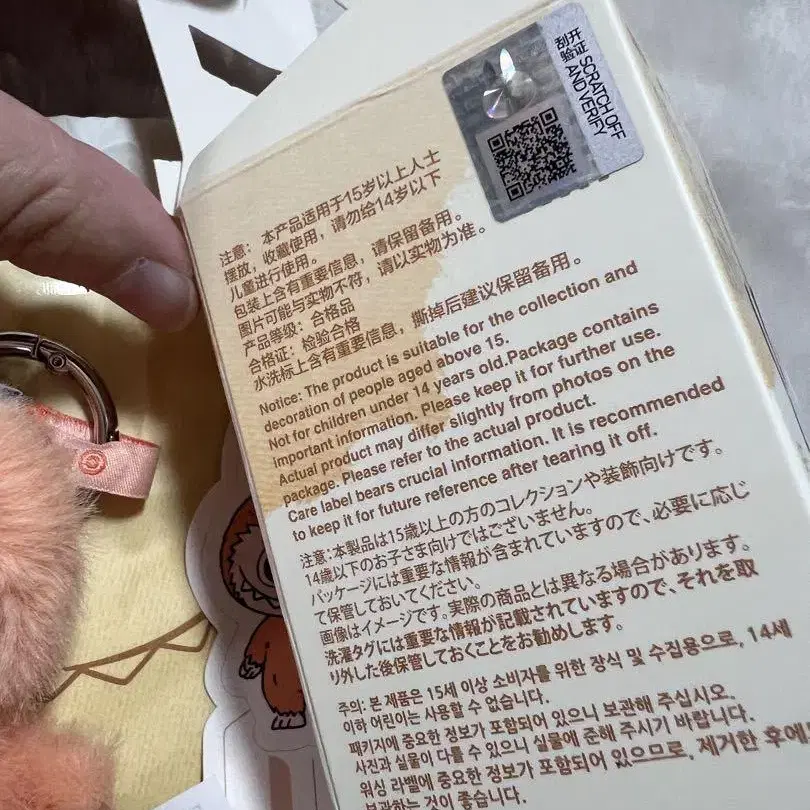 刮开 SCRATCH OFF
验证 AND VERIFY
注意： 本产品适用于15岁以上人士
摆放，收藏使用，请勿给14岁以下
儿童进行使用。
包装上含有重要信息，请保留备用。
图片可能与实物不符，请以实物为准。
产品等级：合格品
合格证：检验合格
水洗标上含有重要信息，撕掉后建议保留备用。
Notice: The product is suitable for the collection and
decoration of people aged above 15.
Not for children under 14 years old.Package contains
important information. Please keep it for further use.
Actual product may differ slightly from photos on the
package. Please refer to the actual product.
Care label bears crucial information. It is recommended
to keep it for future reference after tearing it off.
注意：本製品は15歳以上の方のコレクションや装飾向けです。
14歳以下のお子さま向けではございません。
パッケージには重要な情報が含まれていますので、必要に応じ
て保管しておいてください。
画像はイメージです。実際の商品とは異なる場合があります。
洗濯タグには重要な情報が記載されていますので、それを取
り外した後保管しておくことをお勧めします。
주의: 본 제품은 15세 이상 소비자를 위한 장식 및 수집용으로, 14세
이하 어린이는 사용할 수 없습니다.
패키지에 중요한 정보가 포함되어 있으니 보관해 주십시오.
사진과 실물이 다를 수 있으니 실물에 준해 주시기 바랍니다.
워싱 라벨에 중요한 정보가 포함되어 있으므로, 제거한 후에도
보관하는 것이 좋습니다.